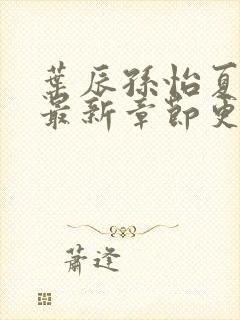 葉辰孫怡夏
最新章節更
蕭逆